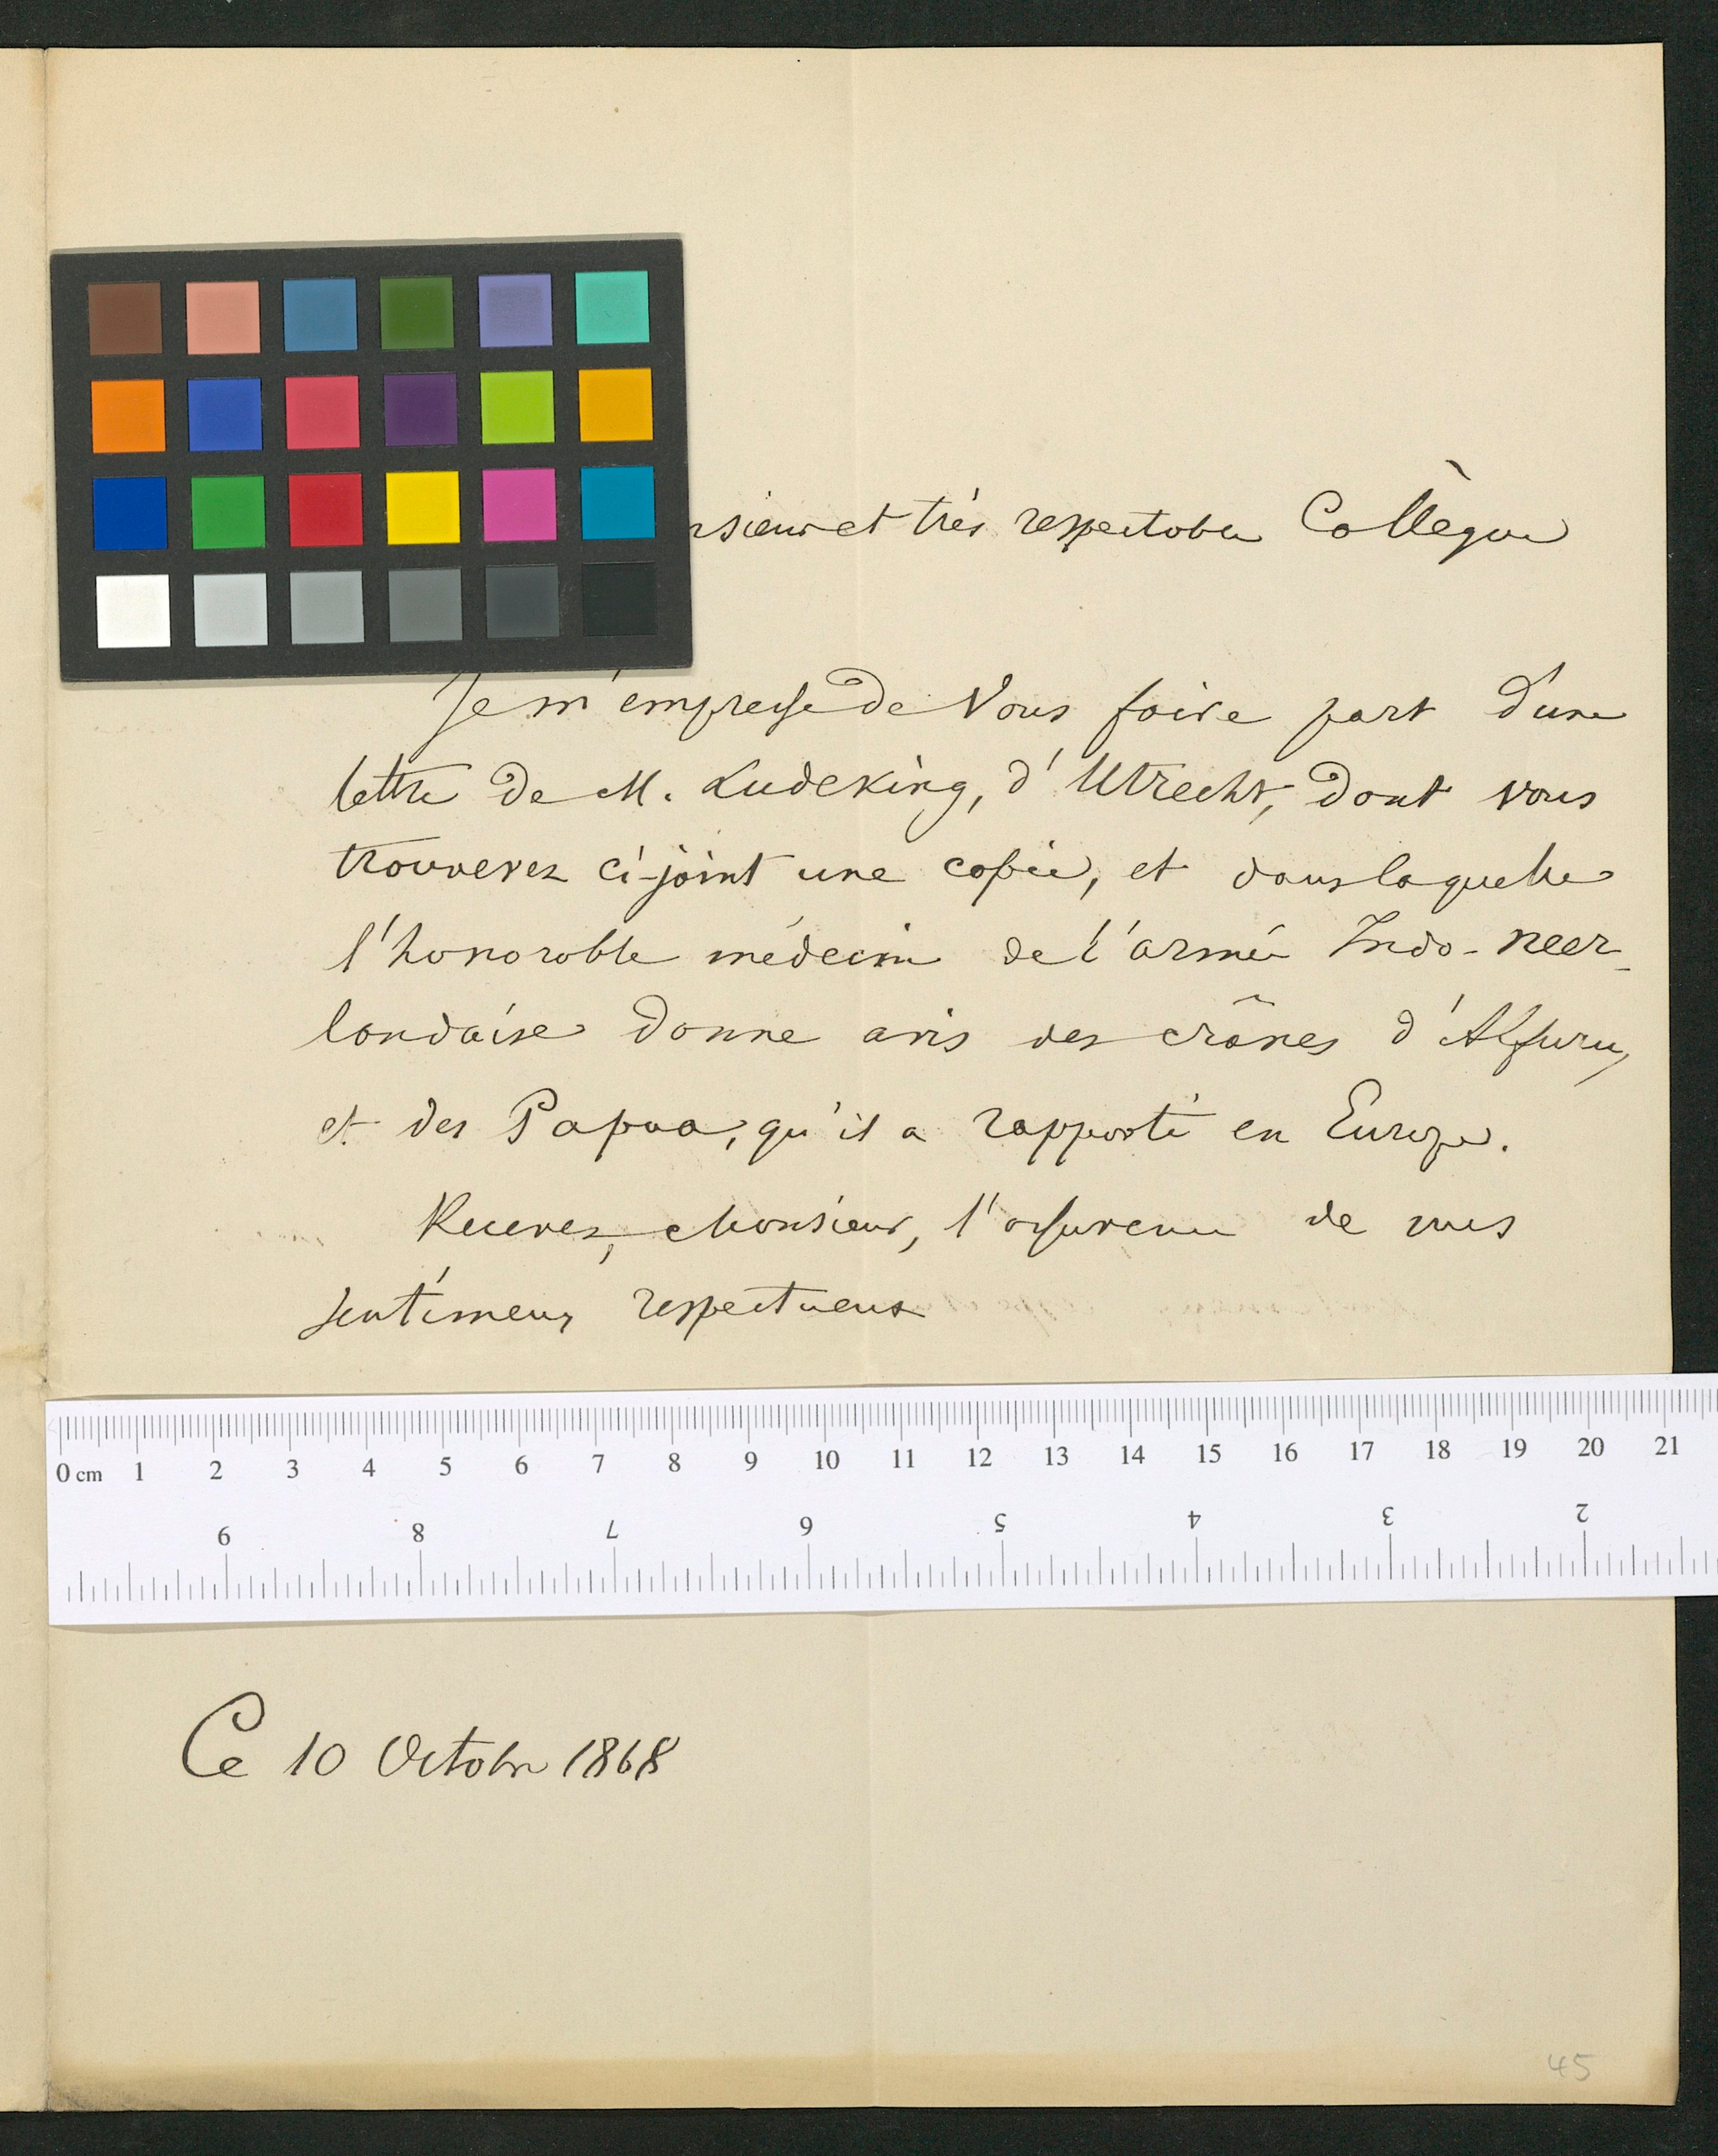 nsieur et très respectable Collègue
Je m'empresse de Vous faire part d'une
lettre de M. Ludeking, d'Utrecht, dont vous
trouverez ci-joint une copie, et dans laquelle
l'honorable médecin de l'armée Indo-neer-
landaise donne avis des crânes d'Alfuru,
et des Papua, qu'il a rapporté en Europe.
Recevez, Monsieur, l'assurance de mes
sentimens respectueux
0 cm 1 2 3 4 5 6 7 8 9 10 11 12 13 14 15 16 17 18 19 20 21
9 8 7 6 5 4 3 2
Ce 10 Octobre 1868
45